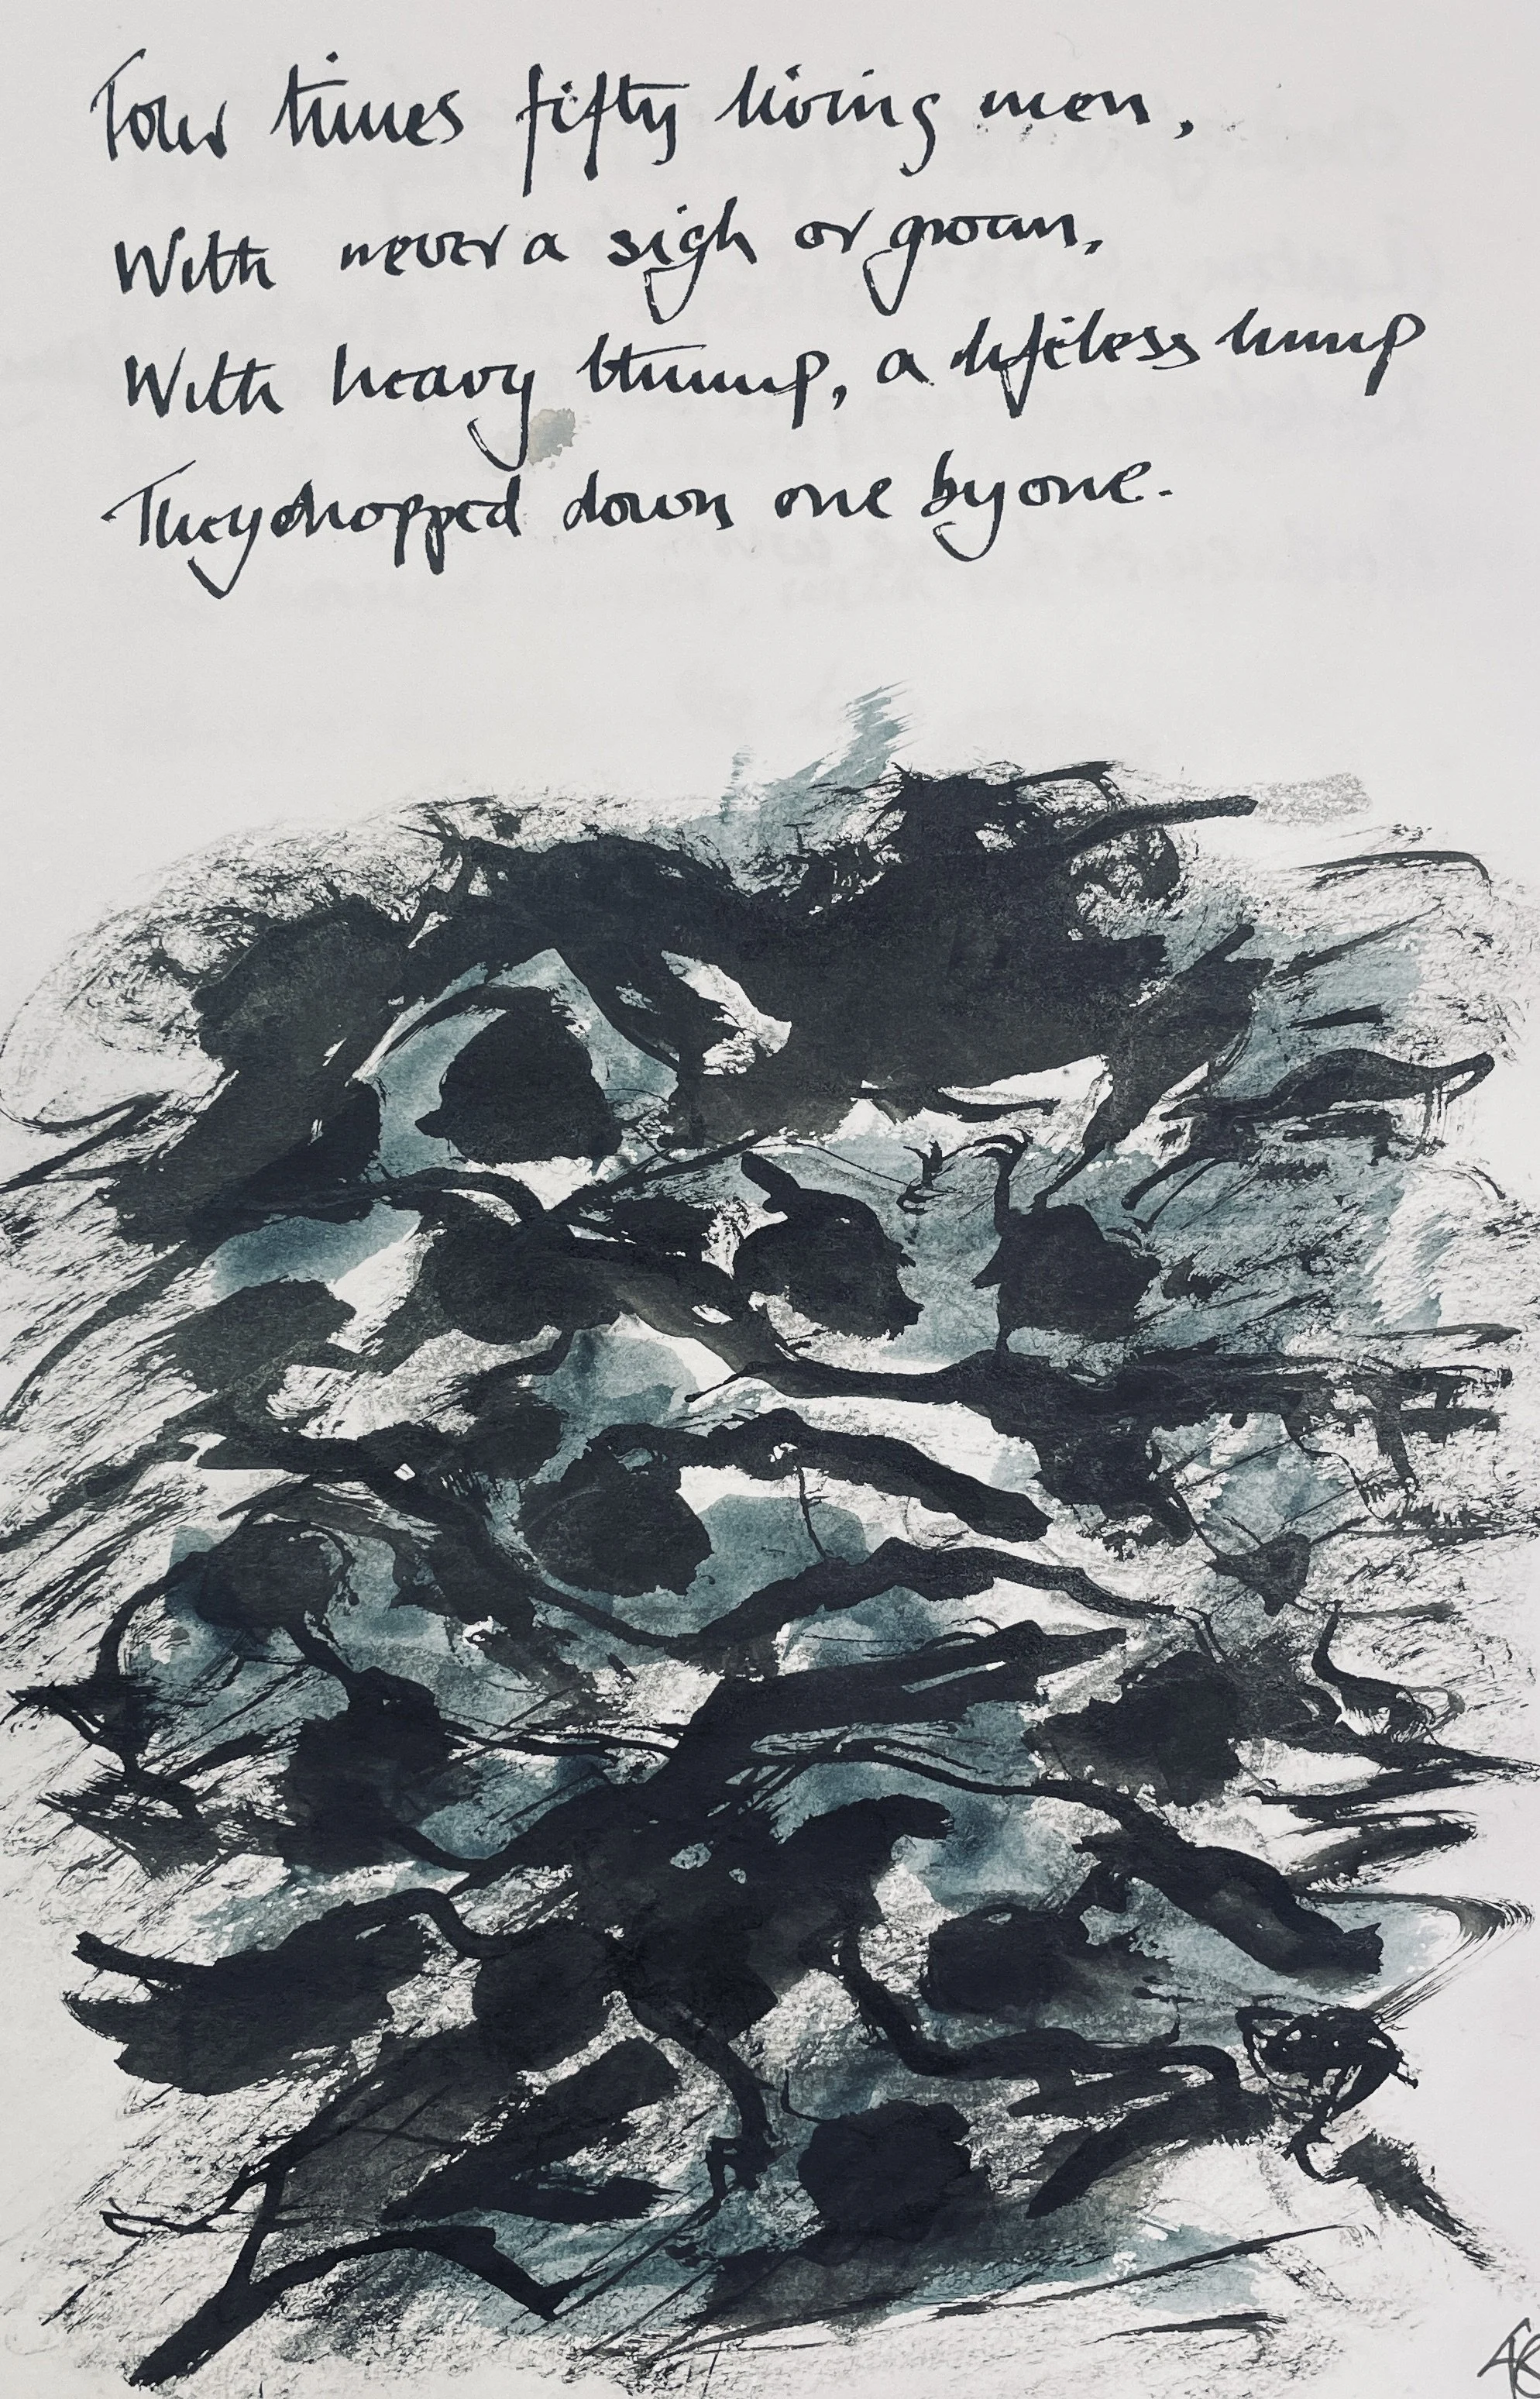 Four times fifty living men,
With never a sigh or groan,
With heavy thump, a lifeless lump
They dropped down one by one.